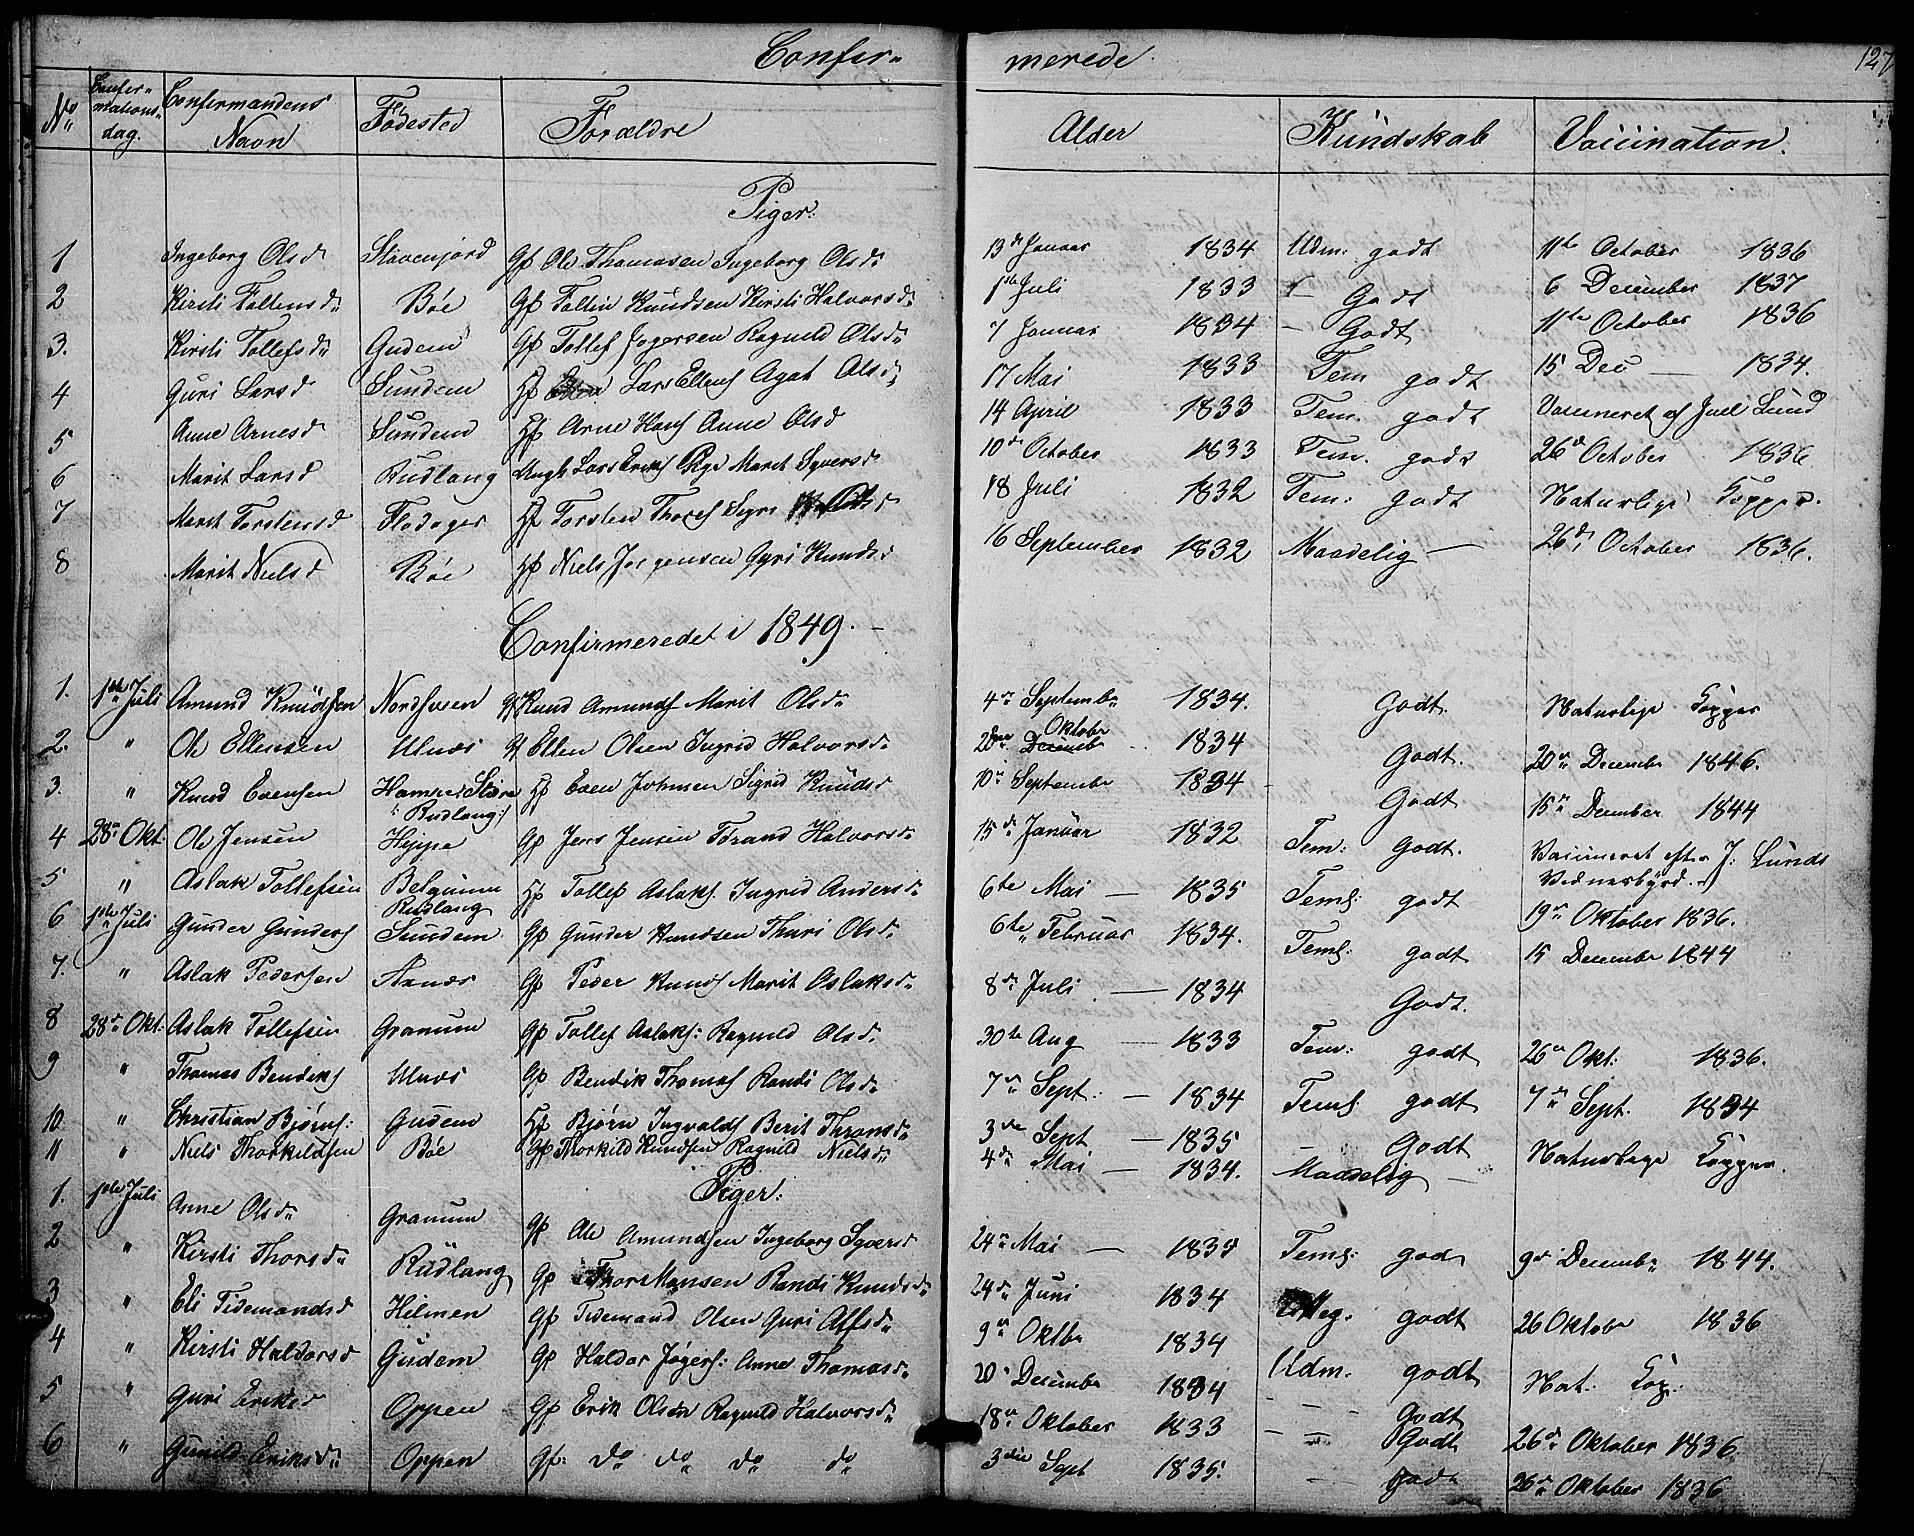 Confir- merede. 127
No Confirmations dag. Confirmandens Navn Fødested Forældre Alder Kundskab Vaccination.
Piger:
1 Ingeborg Olsd Stavenjord Gf Ole Thomasen Ingeborg Olsd 13de Januar 1834 Udm: godt 11te October 1836
2 Kirsti Fallensd Bøe Gf Fallin Knudsen Kirsti Halvorsd 1ste Juli 1833 Godt 6 December 1837
3. Kirsti Tollefsd Gudem Gf Tollef Jøgersen Ragnild Olsd 7 Januar 1834 - Godt 11te October 1836
4 Guri Larsd Sundem Hf Lars Ellens Agat Olsd 17 Mai 1833 Tem godt 15 Dec - 1834.
5 Anne Arnesd Sundem Hf Arne Hans Anne Olsd 14 April 1833 Tem. godt Vaccineret af Juel Lund
6 Marit Larsd Rudlang Ungk Lars Eriks Pige Marit Syversd 10de October 1833 Tem. godt 26de October 1836
7 Marit Torstensd Flodager Hf Torsten Thores Sigri Olsd 18 Juli 1832 Tem: godt Naturlige Kopper.
8 Marit Nielsd Bøe Hf Niels Jørgensen Gyri Knudsd 16 September 1832 Maadelig - 26de October 1836.
Confirmeredet i 1849. -
1. 1ste Juli Amund Knudsen Nordsveen Gf Knud Amunds Marit Olsd 4de Septembr 1834. Godt. Naturlige Kopper
2. " Ole Ellensen Ulnæs Gf Ellen Olsen Ingrid Halvorsd 20de Decembr Oktobr 1834 Godt. 20de Decembr 1846.
3. " Knud Evensen Hamre Slidre Rudlang Hf Even Johnsen Sigrid Knudsd 10de Septembr 1834 - Godt 15de December 1844
4 28de Okt: Ole Jensen Hippe Gf Jens Jensen Torand Halvorsd 15de Januar 1832 Tem: Godt. Vaccineret efter J: Lunds Vidnesbyrd.
5 " Aslak Tollefsen Belgum Rudlang Hf Tollef Aslaks. Ingrid Andersd 6te Mai - 1835 Teml: godt 19de Oktober 1836.
6 1ste Juli Gunder Gunders Sundem Gf Gunder Knudsen Thuri Olsd 6te Februar 1834. Teml: godt 15 Decembr 1844
7. " Aslak Pedersen Axnæs Gf Peder Knuds Marit Aslaksd 8de Juli - 1834 Godt.
8 28de Okt: Aslak Tollefsen Granum Gf Tollef Aslaks: Ragnild Olsd 30te Aug - 1833 Tem: godt 26de Okt: 1836.
9 " Thomas Bendiks Ulnæs Gf Bendik Thomas Randi Olsd 7de Sept: - 1834 Teml: godt 7de Sept. 1834
10 " Christian Bjørns: Gudem Hf Bjørn Ingvalds Berit Thronsd 3die Sept - 1835 - Godt Naturlige Kopper.
11 " Niels Thorkildsen Bøe Gf Thorkild Knudsen Ragnild Nielsd 4de Mai - 1834. Maadelig -
Piger:
1. 1ste Juli Anne Olsd Granum Gf Ole Amundsen Ingeborg Syversd 24de Mai - 1834 Teml: god 9de Decembr 1844.
2 " Kirsti Thorsd Rudlang Gf Thor Monsen Randi Knudsd 24de Juni 1834 Meg. godt 26 Oktobr 1836
3 " Eli Tidemandsd Hilmen Gf Tidemand Olsen Guri Alfsd 9de Oktbr 1834 Udm. godt Nat: Kop:
4 " Kirsti Haldorsd Gudem Gf Haldor Jøgers: Anne Thomasd 20de Decembr 1834 - - - Godt
5 " Guri Eriksd Oppen Gf Erik Olsen Ragnild Halvorsd 18de Oktober 1833 - - Godt 26de Oktober 1836.
6 " Gunild Eriksd Oppen Gf: do do do do 3die Sept 1835. - Godt 26de Oktober 1836